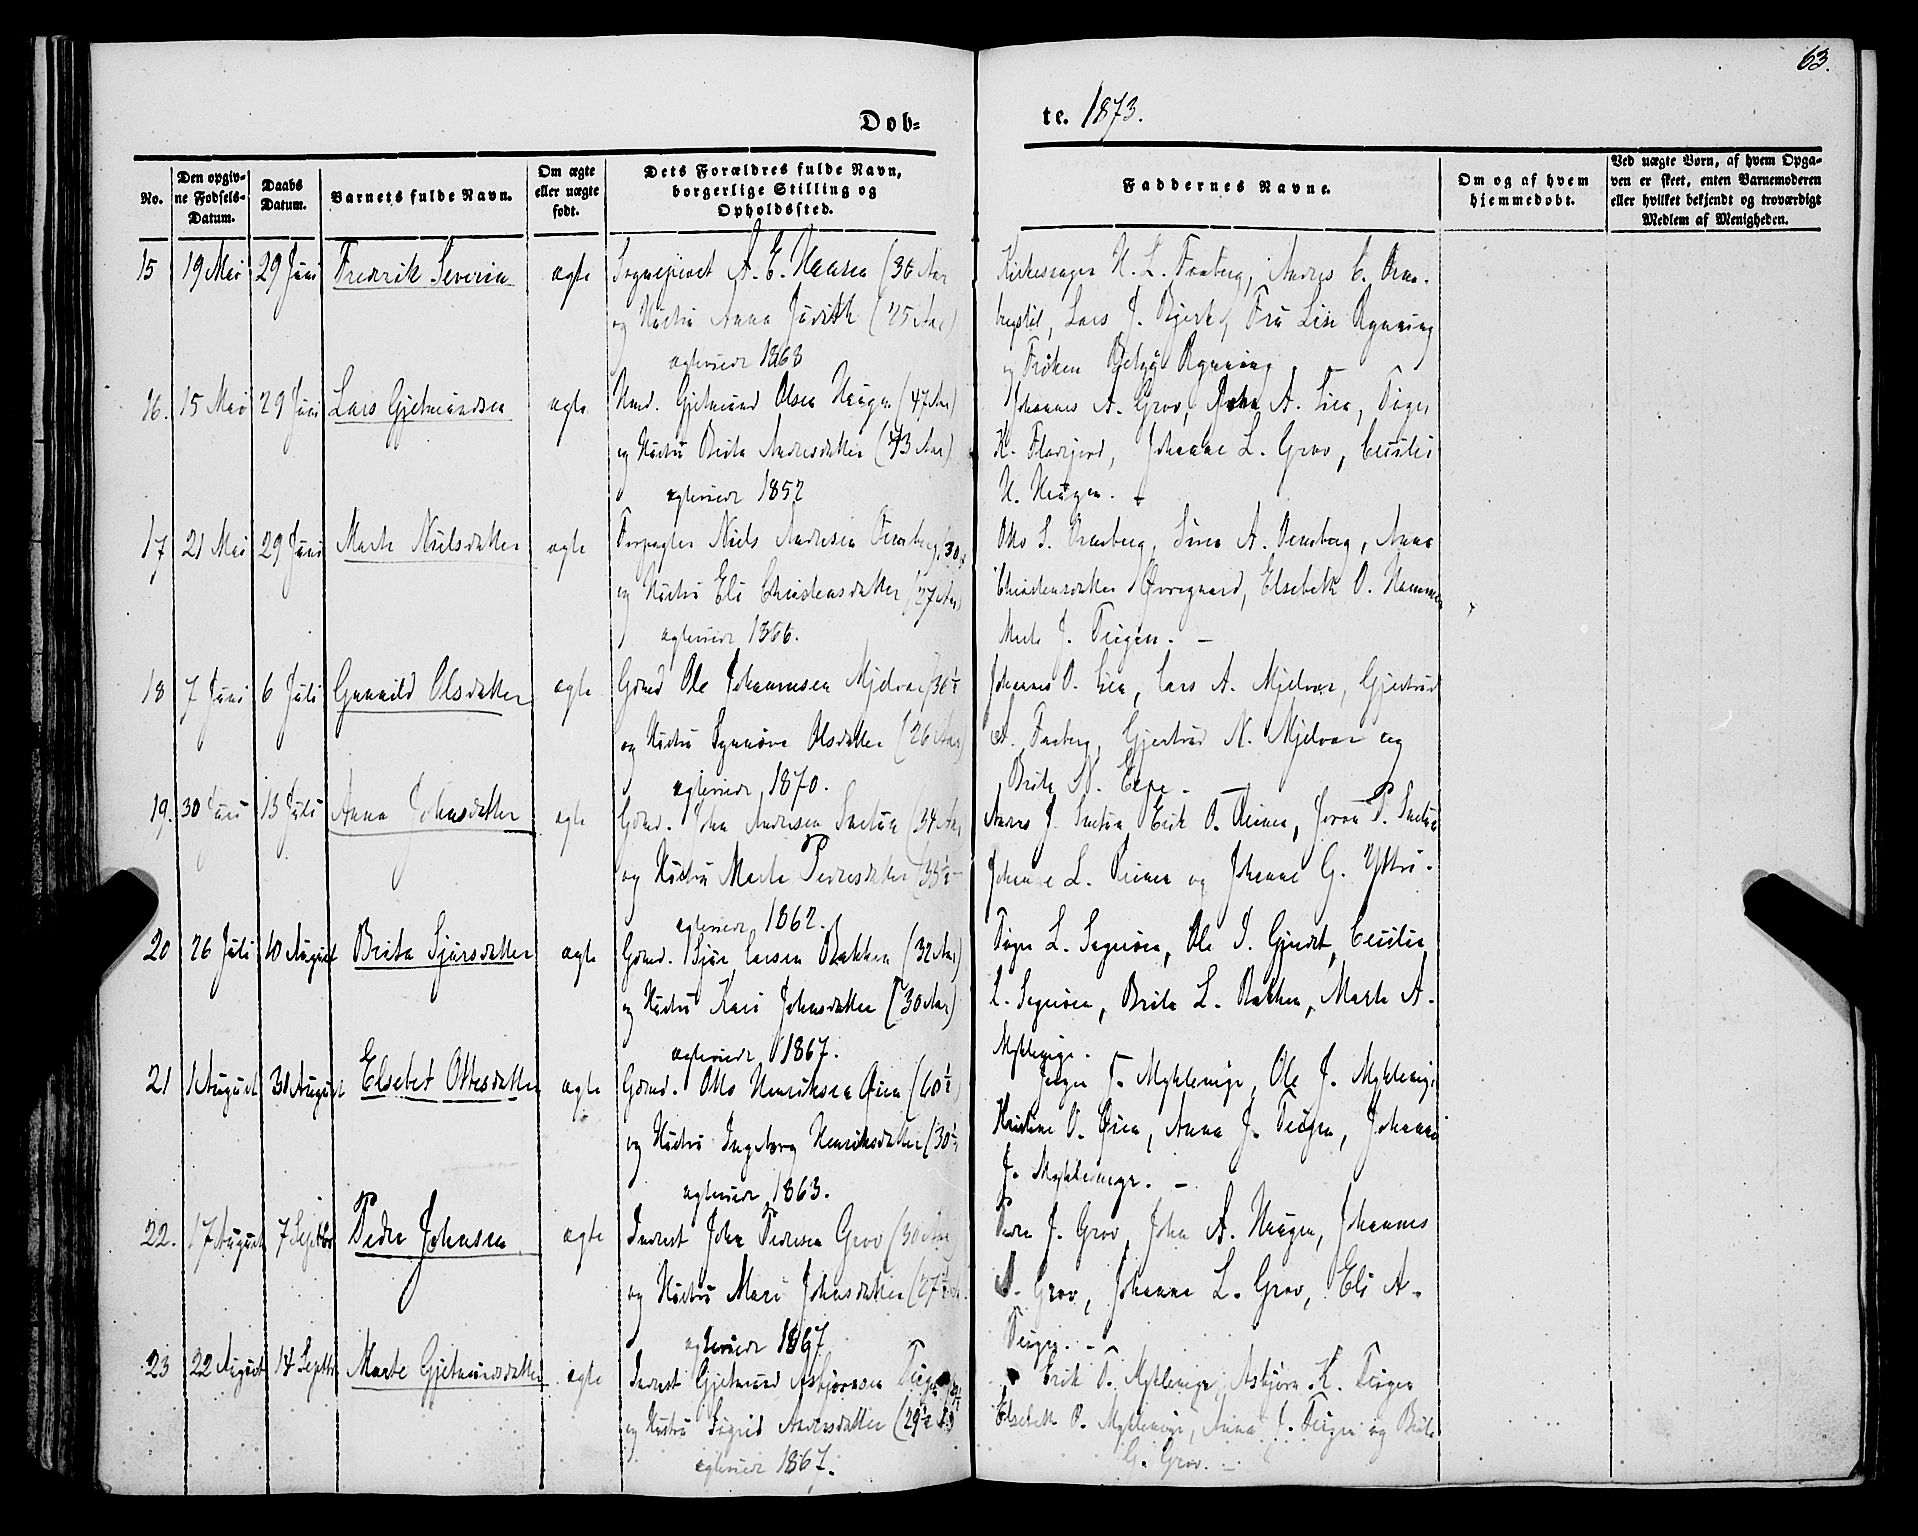 63.
Dob= te. 1873.
No.
Den opgiv-
ne Fødsels-
Datum.
Daabs
Datum.
Barnets fulde Navn.
Om ægte
eller uægte
født.
Dets Forældres fulde Navn,
borgerlige Stilling og
Opholdssted.
Faddernes Navne.
Om og af hvem
hjemmedøbt.
Ved uægte Børn, af hvem Opga-
ven er skeet, enten Barnemoderen
eller hvilket bekjendt og troværdigt
Medlem af Menigheden.
15 19 Mai 29 Juni Fredrik Severin ægte Sognepræst A. E. Hansen (36 Aar
og Hustru Anna Judith (25 Aar)
ægteviede 1868
Kirkesanger H. L. Faaberg, Andres
Lars J. Bjerk, Fru Lise Rynning
og Frøken Rynning
16. 15 Mai 29 Juni Lars Gjetmundsen ægte Gjetmund Olsen Haugen (47 Aar)
og Hustru Brita Andersdatter (43 Aar)
ægteviede 1852
Johannes A. Grov, John A. Lien,
K. Johanne L. Grov, Cecilie
H. Haugen.
17 21 Mai 29 Juni Marte Nielsdatter ægte Forpagter Niels Andresen 30
og Hustru Eli Christensdatter (27 Aar)
ægteviede 1866.
Otto S. A. Anna
Christensdatter Øvregaard, Elsebeth O. Hammer
Marte J. Teigen. -
18 7 Juni 6 Juli Gunnild Olsdatter ægte Gbmd Ole Johannesen Mjelvær 36½
og Hustru Synnøve Olsdatter (26 Aar)
ægteviede 1870.
Johannes O. Lien, Lars A. Mjelvær, Gjertrud
A. Faaberg, Gjertrud N. Mjelvær og
Brita N. Espe. -
19. 30 Juni 13 Juli Anna Johnsdatter ægte Gbmd. John Andresen Snetun (34 Aar
og Hustru Marte Pedersdatter (35½
ægteviede 1862.
Andres J. Snetun, Erik O. Joron P. Snetun
Johanne L. og Johanne G. Ystri.
20 26 Juli 10 August Brita Sjursdatter ægte Gbmd. Sjur Larsen Bakken (32 Aar)
og Hustru Kari Johnsdatter (30 Aar)
ægteviede 1867.
L. Segnøen, Ole I. Gjerdet, Cecilie
L. Segnøen, Brita L. Bakken, Marte A.
Myklemyr.
21 1 August 31 August Elsebet Ottesdatter ægte Gbmd. Otto Henriksen Øien (40½
og Hustru Ingeborg Henriksdatter (30½
ægteviede 1863.
T. Myklemyr, Ole J. Myklemyr
Kristine O. Øien, Anna J. Teigen, Johanne
J. Myklemyr. -
22. 17 August 7 Septbr Peder Johnsen ægte Inderst John Pedersen Grov (30 Aar)
og Hustru Mari Johnsdatter (27½
ægteviede 1867
Peder J. Grov, John A. Haugen, Johannes
A. Grov, Johanne L. Grov, Eli A.
Teigen. -
23 22 August 14 Septbr Marte Gjetmundsdatter ægte Inderst Gjetmund Asbjørnsen Teigen
og Hustru Sigrid Andersdatter (29½
ægteviede 1867.
Erik T. Myklemyr, Asbjørn K. Teigen
Elsebeth P. Myklemyr, Anna J. Teigen og Brita
G. Grov. -